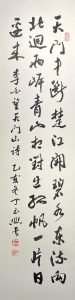 天门中断楚江开碧水东流向
北迴两岸青山相对出孤帆一片日
边来李白望天门山诗乙亥冬丁玉熙书